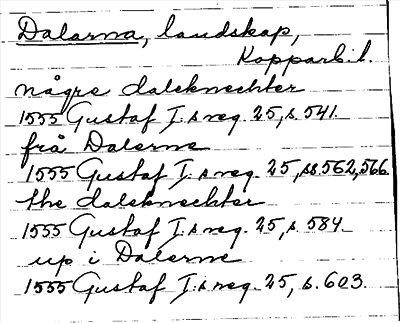 Dalarna, landskap,
Kopparb. l.
någre daleknechter
1555 Gustaf I:s reg. 25, s. 541.
frå Dalerne
1555 Gustaf I:s reg. 25, ss. 562, 566.
the daleknechter
1555 Gustaf I:s reg. 25, s. 584.
up i Dalerne
1555 Gustaf I:s reg. 25, s. 603.